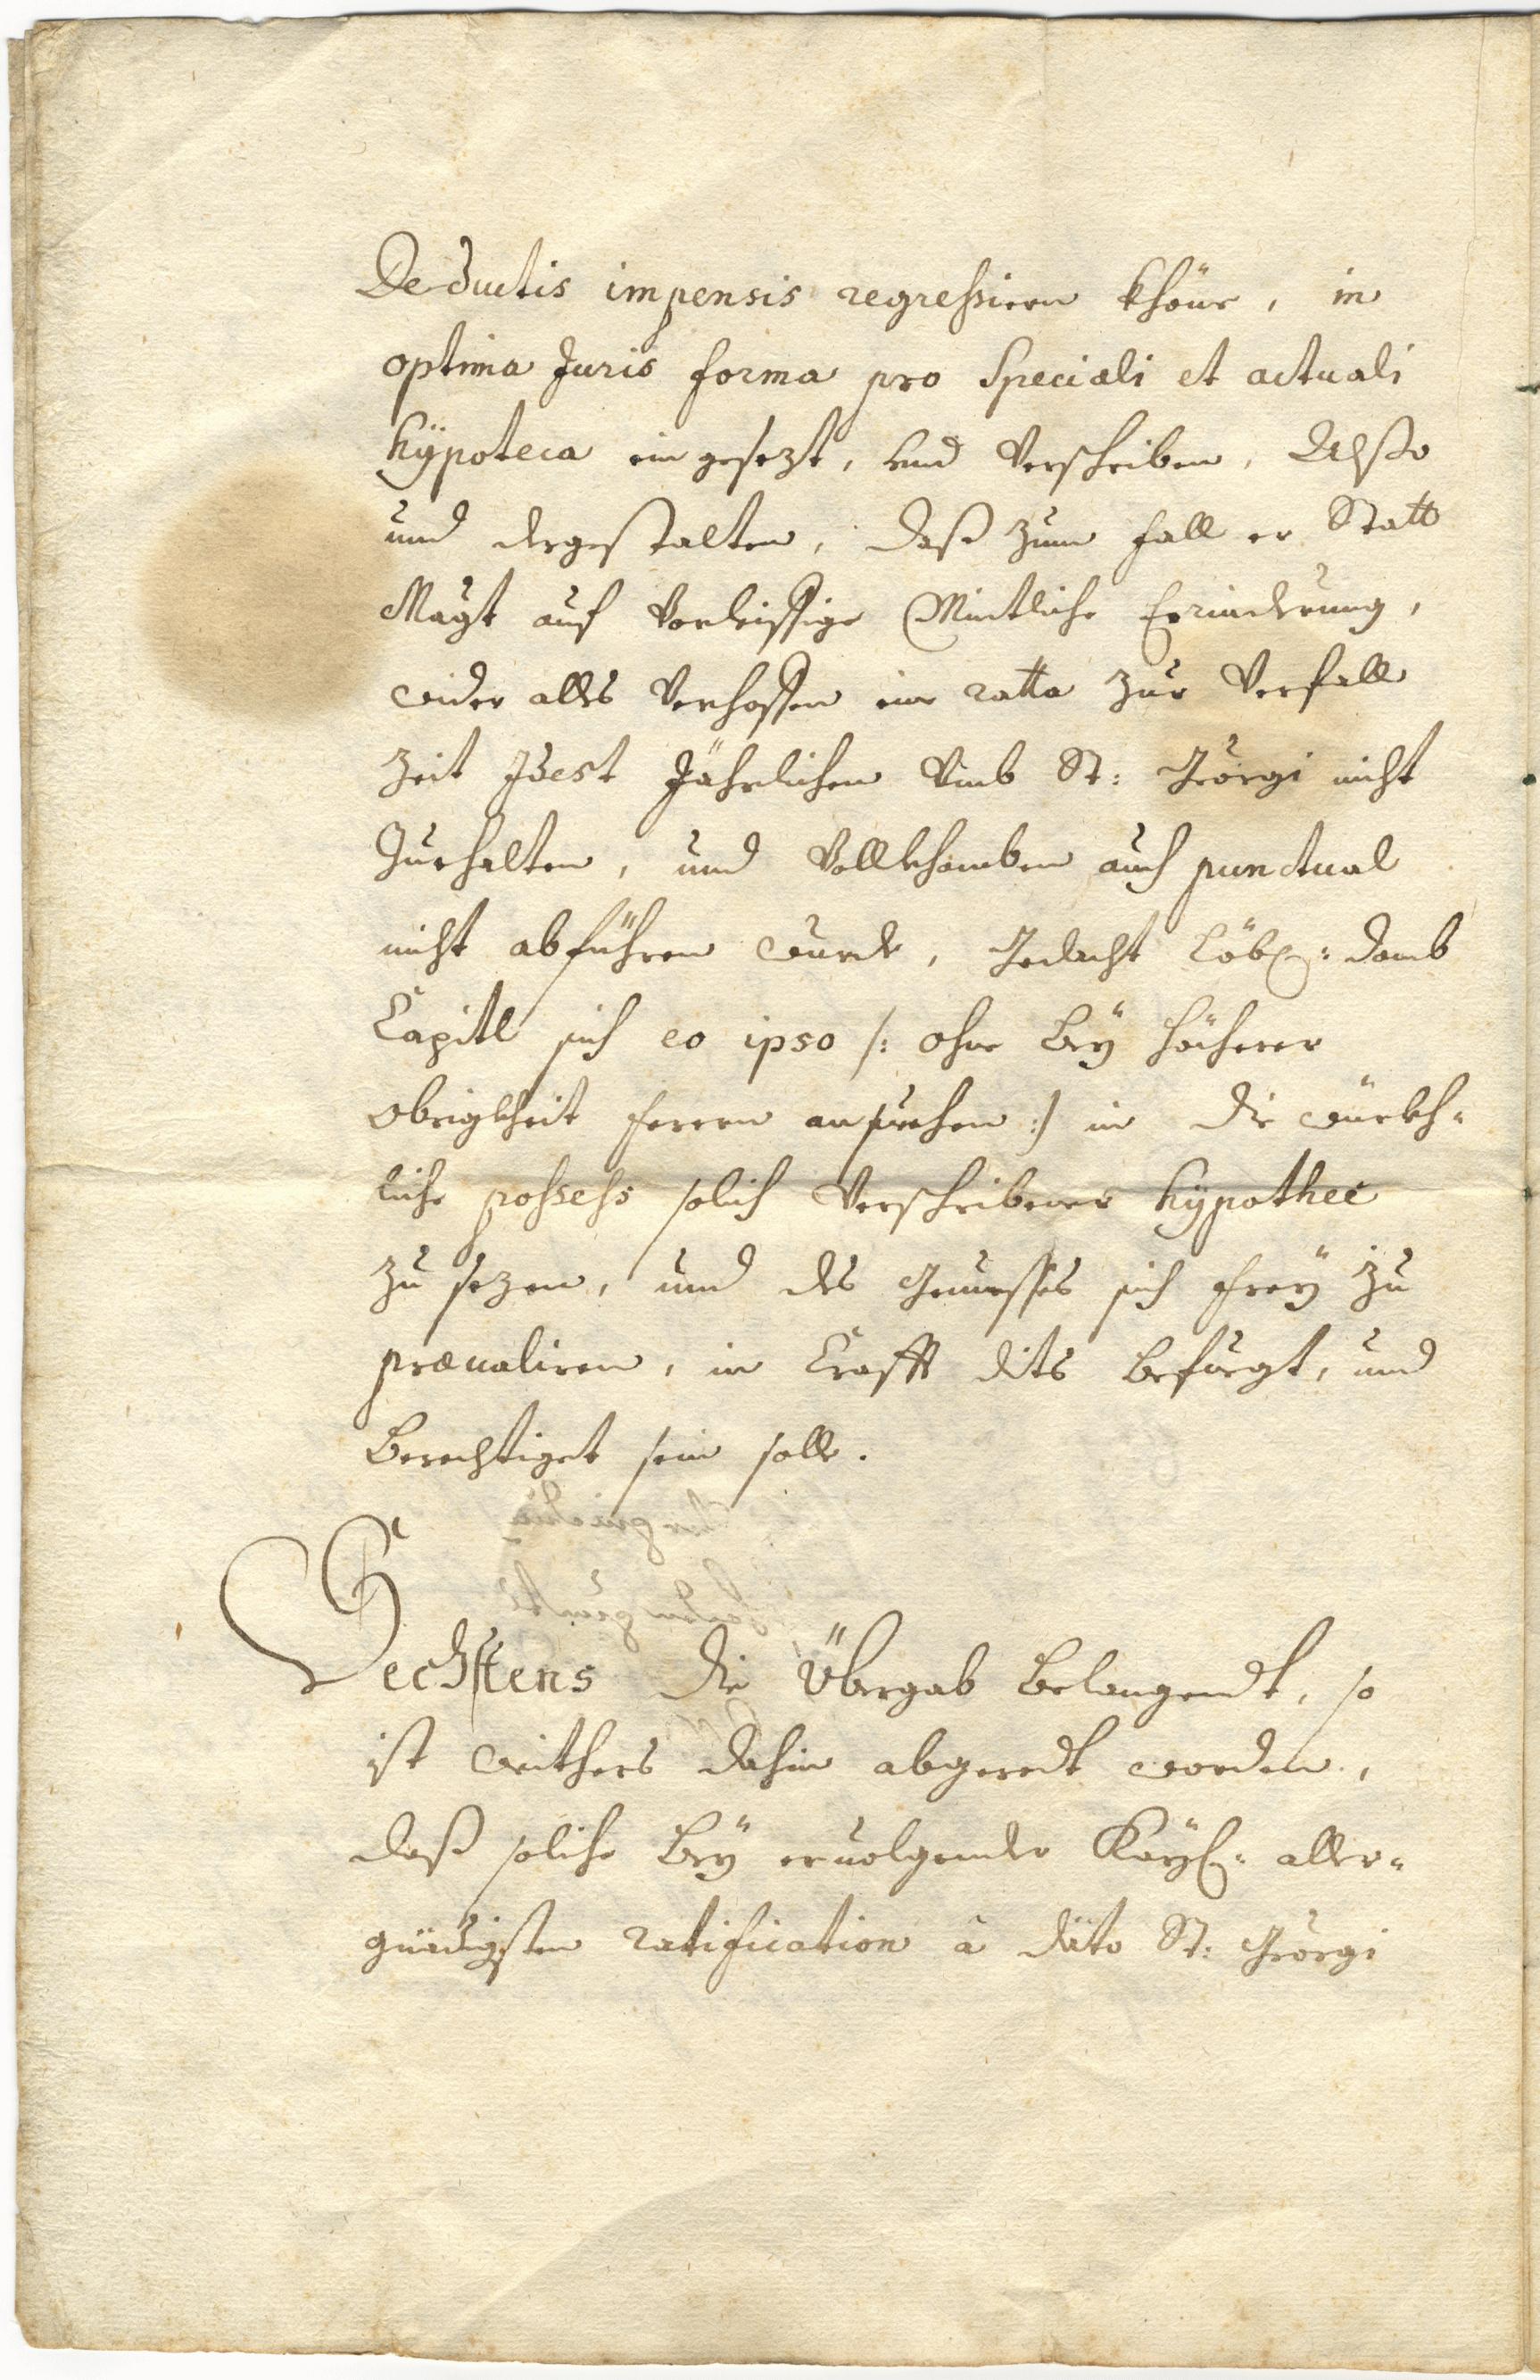 Deductis impensis regressiern khöne, in
optima Juris forma pro Speciali et actuali
hÿpoteca eingesezt, und Verschriben, Alßo
und dergestalten, daß zum fall er Statt
Magt auf Vorleissige Mintliche Erinderung,
wider alles Verhoffen eine ratta zur Verfall
Zeit Idest Jährlichen Umb St: Georgi nicht
Zuehalten, und Vollkhomben auch punctual
nicht abführen wurde, Gedacht Löbl: Domb
Capitl sich eo ipso /: ohne beÿ höcherer
Obrigkheit ferern ansuechen :/ in die würkh=
liche possess solich Verschribener hÿpothec
zu sezen, und des Genusses sich freÿ zu
prævaliren, in Crafft dits befuegt, und
berechtiget sein solle.
Sechstens die Übergab belangendt, so
ist weithers dahin abgeredt worden,
daß solche beÿ ervolgender Kaÿl: aller=
gnädigsten ratification à dato St: Georgi